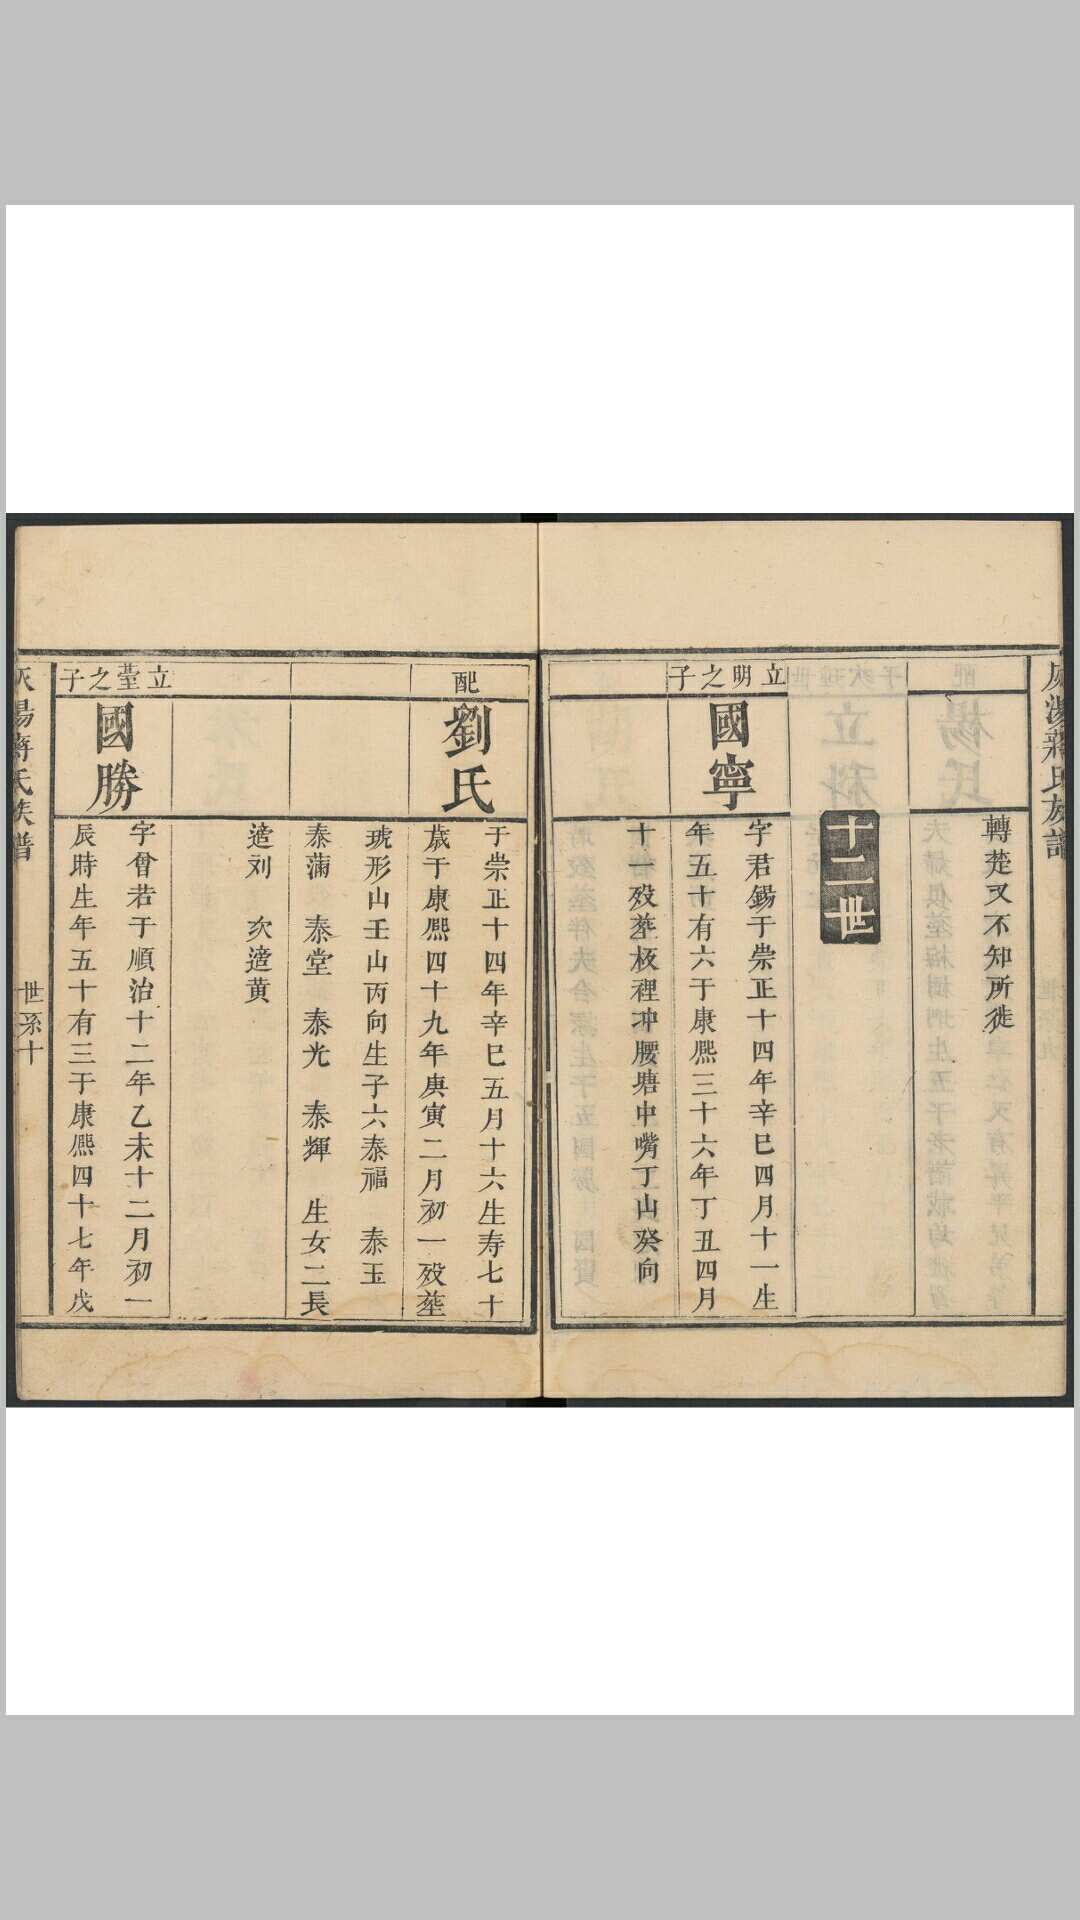 轉楚又不知所徙
十二世
立明之子
國寧
字君錫于崇正十四年辛巳四月十一生
年五十有六于康熈三十六年丁丑四月
十一歿塟板裡冲腰塘中嘴丁山癸向
配
劉氏
于崇正十四年辛巳五月十六生寿七十
歳于康熈四十九年庚寅二月初一歿塟
琥形山壬山丙向生子六泰福　泰玉
泰蒲　泰堂　泰光　泰輝　生女二長
適刘　次適黄
立臺之子
國勝
字曾若于順治十二年乙未十二月初一
辰時生年五十有三于康熈四十七年戊
蔣氏族譜
世系十